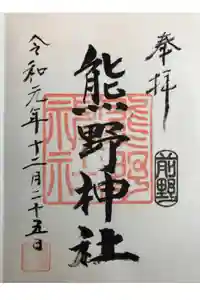 奉拝
前野
熊野神社
熊野神社
令和元年十二月二十五日